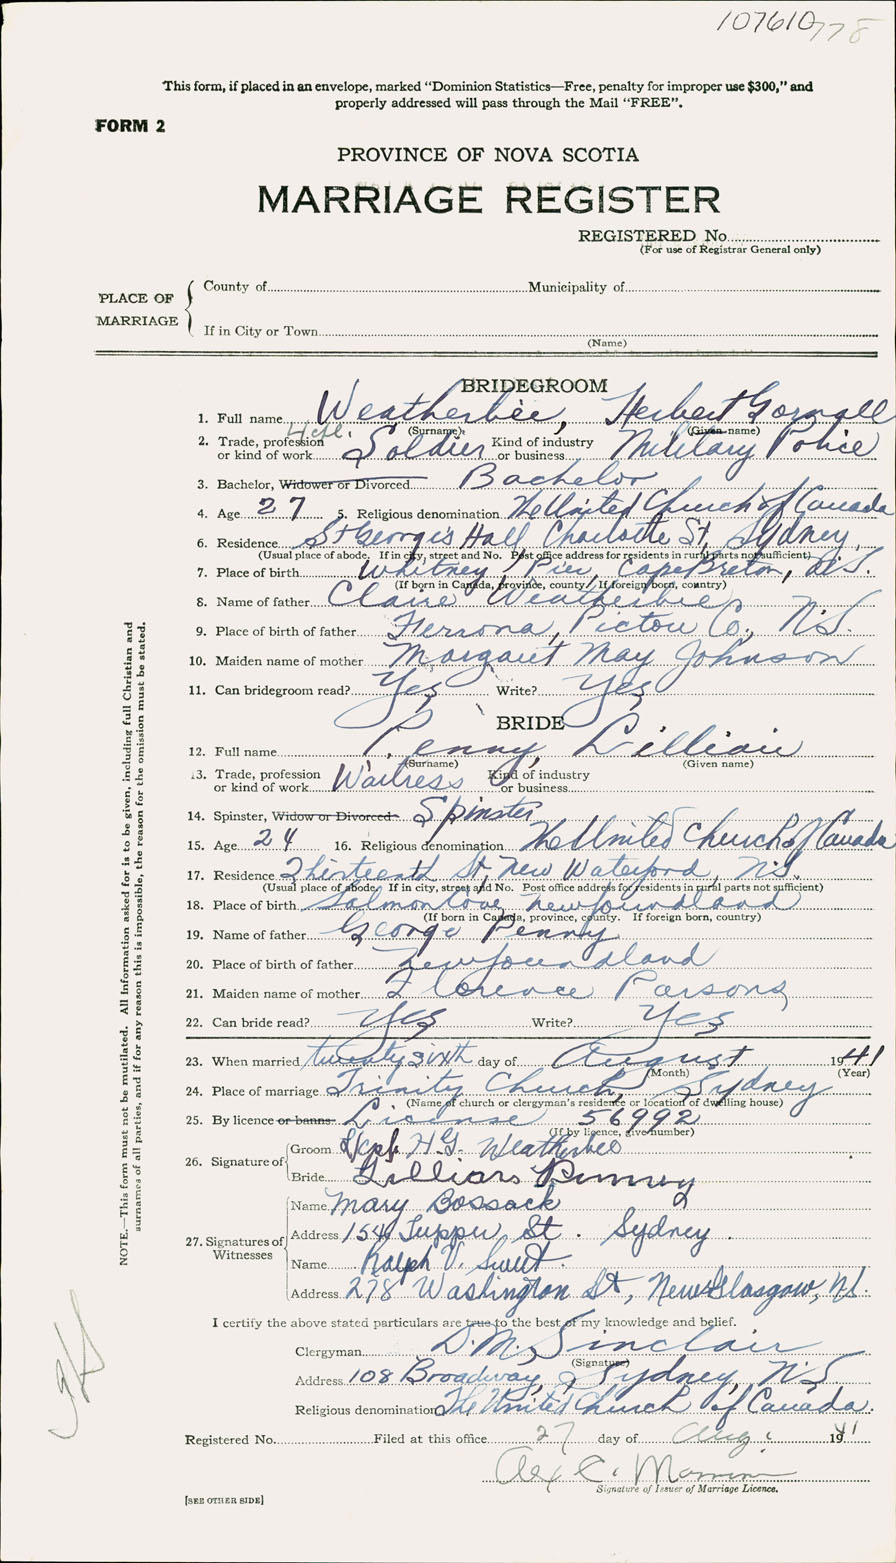 107610778
This form, if placed in an envelope, marked “Dominion Statistics—Free, penalty for improper use $300,” and
properly addressed will pass through the Mail “FREE”.
FORM 2
PROVINCE OF NOVA SCOTIA
MARRIAGE REGISTER
REGISTERED No.
(For use of Registrar General only)
PLACE OF MARRIAGE
County of Municipality of
If in City or Town
(Name)
BRIDEGROOM
1. Full name Weatherbie, Herbert Gornall
(Surname) (Given name)
2. Trade, profession or kind of work Soldier Kind of industry or business Military Police
3. Bachelor, Widower or Divorced Bachelor
4. Age 27 5. Religious denomination The United Church of Canada
6. Residence St George's Hall Charlotte St, Sydney,
(Usual place of abode. If in city, street and No. Post office address for residents in rural parts not sufficient)
7. Place of birth Whitney Pier, Cape Breton, N.S.
(If born in Canada, province, county. If foreign born, country)
8. Name of father Claire Weatherbie
9. Place of birth of father Ferrona, Pictou Co., N.S.
10. Maiden name of mother Margaret May Johnson
11. Can bridegroom read? Yes Write? Yes
BRIDE
12. Full name Penny, Lillian
(Surname) (Given name)
13. Trade, profession or kind of work Waitress Kind of industry or business
14. Spinster, Widow or Divorced Spinster
15. Age 24 16. Religious denomination The United Church of Canada
17. Residence Thirteenth St, New Waterford, N.S.
(Usual place of abode. If in city, street and No. Post office address for residents in rural parts not sufficient)
18. Place of birth Salmon Cove, Newfoundland
(If born in Canada, province, county. If foreign born, country)
19. Name of father George Penny
20. Place of birth of father Newfoundland
21. Maiden name of mother Florence Parsons
22. Can bride read? Yes Write? Yes
23. When married twenty sixth day of August 1941
(Month) (Year)
24. Place of marriage Trinity Church, Sydney
(Name of church or clergyman's residence or location of dwelling house)
25. By licence or banns License 56992
(If by licence, give number)
26. Signature of Groom L/Cpl. H G Weatherbee
Bride Lillian Penney
27. Signatures of Witnesses
Name Mary Bossack
Address 154 Tupper St. Sydney.
Name Ralph V. Swett.
Address 278 Washington St, New Glasgow, NS.
I certify the above stated particulars are true to the best of my knowledge and belief.
Clergyman D. M. Sinclair
(Signature)
Address 108 Broadway, Sydney, N.S
Religious denomination The United Church of Canada.
Registered No. Filed at this office 27 day of Aug. 1941
Alex C.
Signature of Issuer of Marriage Licence.
[SEE OTHER SIDE]
NOTE.—This form must not be mutilated. All Information asked for is to be given, including full Christian and
surnames of all parties, and if for any reason this is impossible, the reason for the omission must be stated.